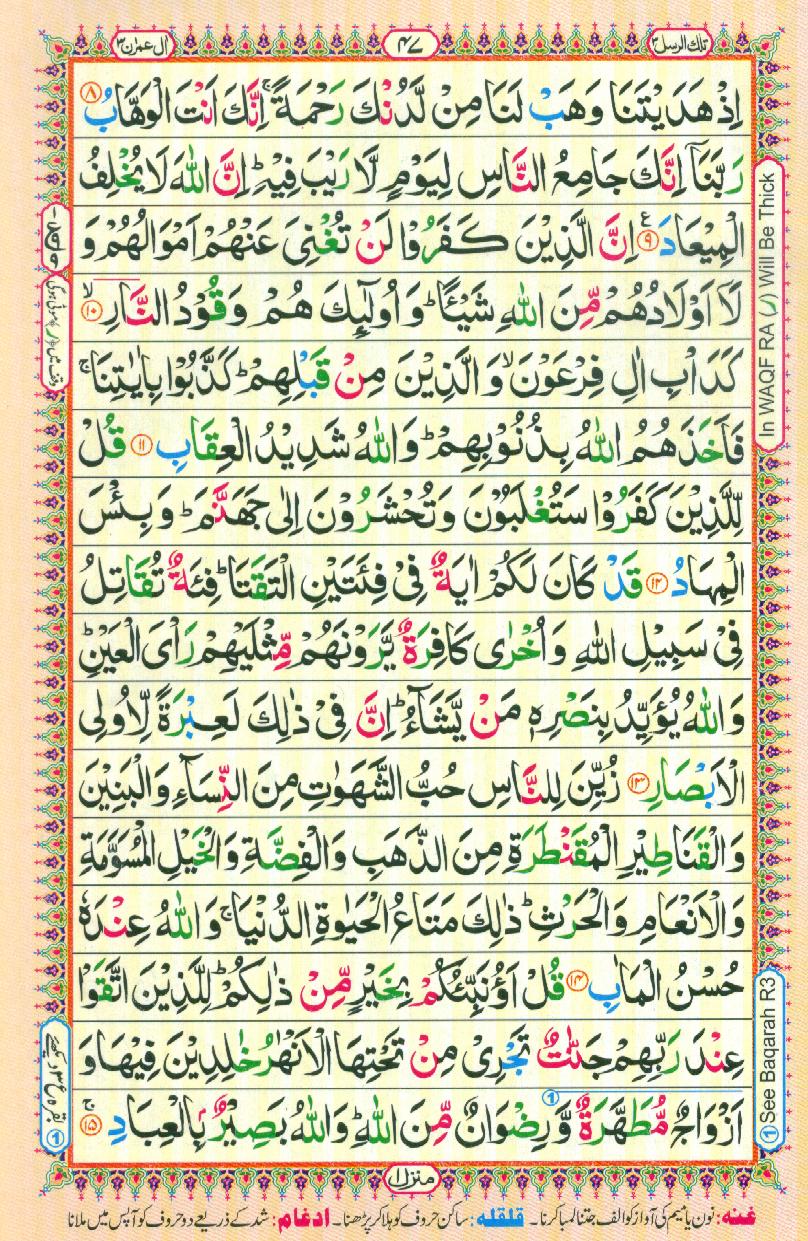 تلك الرسل ٣
٤٧
اٰل عمرٰن ٣
اِذْ هَدَيْتَنَا وَهَبْ لَنَا مِنْ لَّدُنْكَ رَحْمَةً ۚ اِنَّكَ اَنْتَ الْوَهَّابُ ۸
رَبَّنَاۤ اِنَّكَ جَامِعُ النَّاسِ لِيَوْمٍ لَّا رَيْبَ فِيْهِ ؕ اِنَّ اللّٰهَ لَا يُخْلِفُ
الْمِيْعَادَ ۹ ع اِنَّ الَّذِيْنَ كَفَرُوْا لَنْ تُغْنِىَ عَنْهُمْ اَمْوَالُهُمْ وَ
لَاۤ اَوْلَادُهُمْ مِّنَ اللّٰهِ شَيْـًٔا ؕ وَاُولٰٓئِكَ هُمْ وَقُوْدُ النَّارِ ۙ ۱۰
كَدَاْبِ اٰلِ فِرْعَوْنَ ۙ وَالَّذِيْنَ مِنْ قَبْلِهِمْ ؕ كَذَّبُوْا بِاٰيٰتِنَا ۚ
فَاَخَذَهُمُ اللّٰهُ بِذُنُوْبِهِمْ ؕ وَاللّٰهُ شَدِيْدُ الْعِقَابِ ۱۱ قُلْ
لِّلَّذِيْنَ كَفَرُوْا سَتُغْلَبُوْنَ وَتُحْشَرُوْنَ اِلٰى جَهَنَّمَ ؕ وَبِئْسَ
الْمِهَادُ ۱۲ قَدْ كَانَ لَكُمْ اٰيَةٌ فِىْ فِئَتَيْنِ الْتَقَتَا ؕ فِئَةٌ تُقَاتِلُ
فِىْ سَبِيْلِ اللّٰهِ وَاُخْرٰى كَافِرَةٌ يَّرَوْنَهُمْ مِّثْلَيْهِمْ رَاْىَ الْعَيْنِ ؕ
وَاللّٰهُ يُؤَيِّدُ بِنَصْرِهٖ مَنْ يَّشَآءُ ؕ اِنَّ فِىْ ذٰلِكَ لَعِبْرَةً لِّاُولِى
الْاَبْصَارِ ۱۳ زُيِّنَ لِلنَّاسِ حُبُّ الشَّهَوٰتِ مِنَ النِّسَآءِ وَالْبَنِيْنَ
وَالْقَنَاطِيْرِ الْمُقَنْطَرَةِ مِنَ الذَّهَبِ وَالْفِضَّةِ وَالْخَيْلِ الْمُسَوَّمَةِ
وَالْاَنْعَامِ وَالْحَرْثِ ؕ ذٰلِكَ مَتَاعُ الْحَيٰوةِ الدُّنْيَا ۚ وَاللّٰهُ عِنْدَهٗ
حُسْنُ الْمَاٰبِ ۱۴ قُلْ اَؤُنَبِّئُكُمْ بِخَيْرٍ مِّنْ ذٰلِكُمْ ؕ لِلَّذِيْنَ اتَّقَوْا
عِنْدَ رَبِّهِمْ جَنّٰتٌ تَجْرِىْ مِنْ تَحْتِهَا الْاَنْهٰرُ خٰلِدِيْنَ فِيْهَا وَ
اَزْوَاجٌ مُّطَهَّرَةٌ وَّرِضْوَانٌ ① مِّنَ اللّٰهِ ؕ وَاللّٰهُ بَصِيْرٌۢ بِالْعِبَادِ ۚ ۱۵
In WAQF RA (ر) Will Be Thick
① See Baqarah R3
منزل ١
غنه: نون یا میم کی آواز کو الف جتنا لمبا کرنا۔ قلقله: ساکن حروف کو ہلا کر پڑھنا۔ ادغام: شد کے ذریعے دو حروف کو آپس میں ملانا